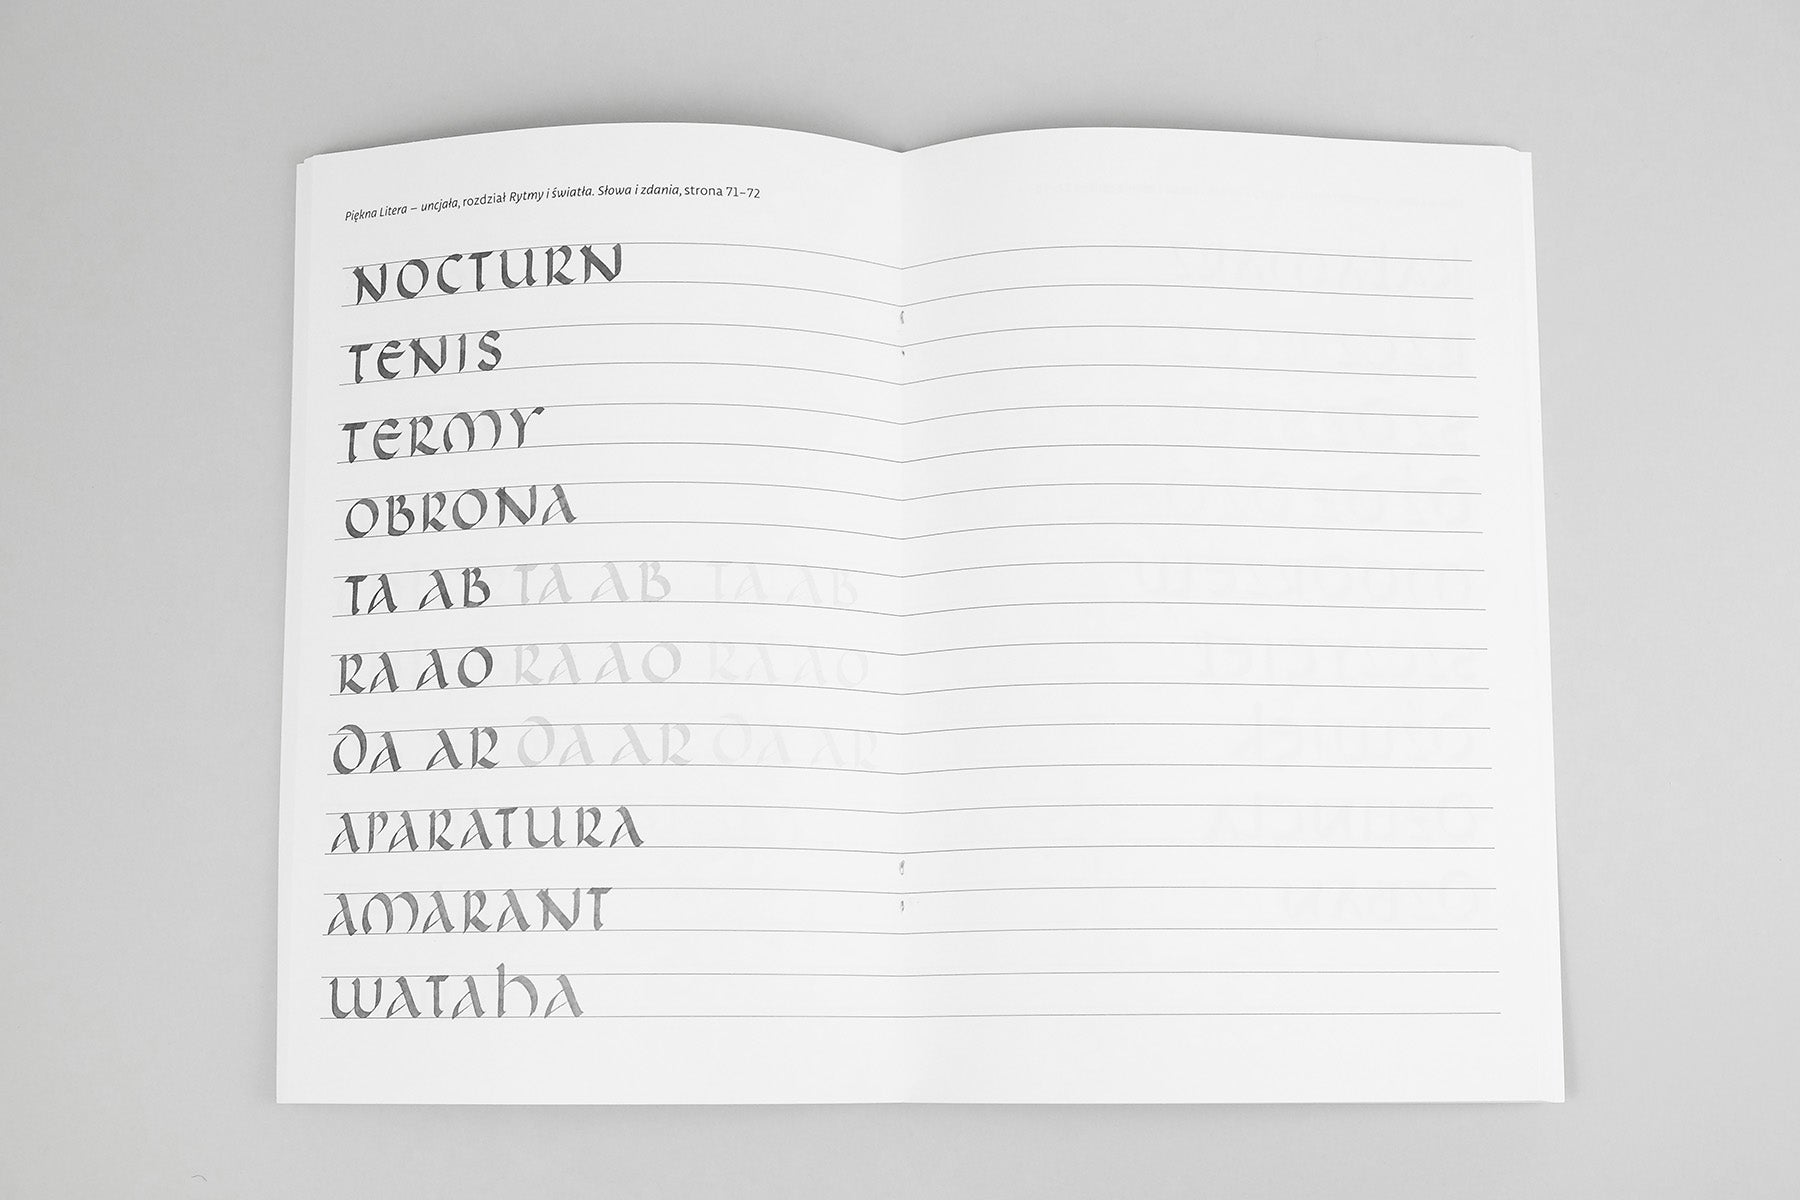 Piękna Litera – uncjała, rozdział Rytmy i światła. Słowa i zdania, strona 71–72
NOCTURN
TENIS
TERMY
OBRONA
TA AB TA AB TA AB
RA AO RA AO RA AO
DA AR DA AR DA AR
APARATURA
AMARANT
WATAHA